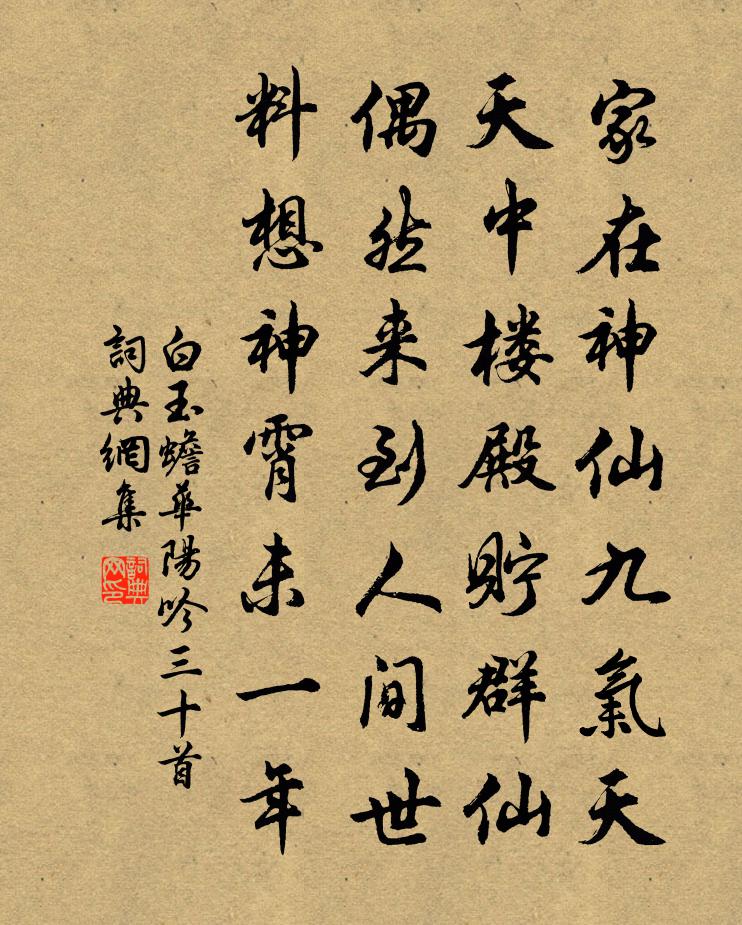 家在神仙九氣天
天中楼殿貯群仙
偶然来到人间世
料想神霄未一年
白玉蟾華陽吟三十首
詞典網集
詞典网印